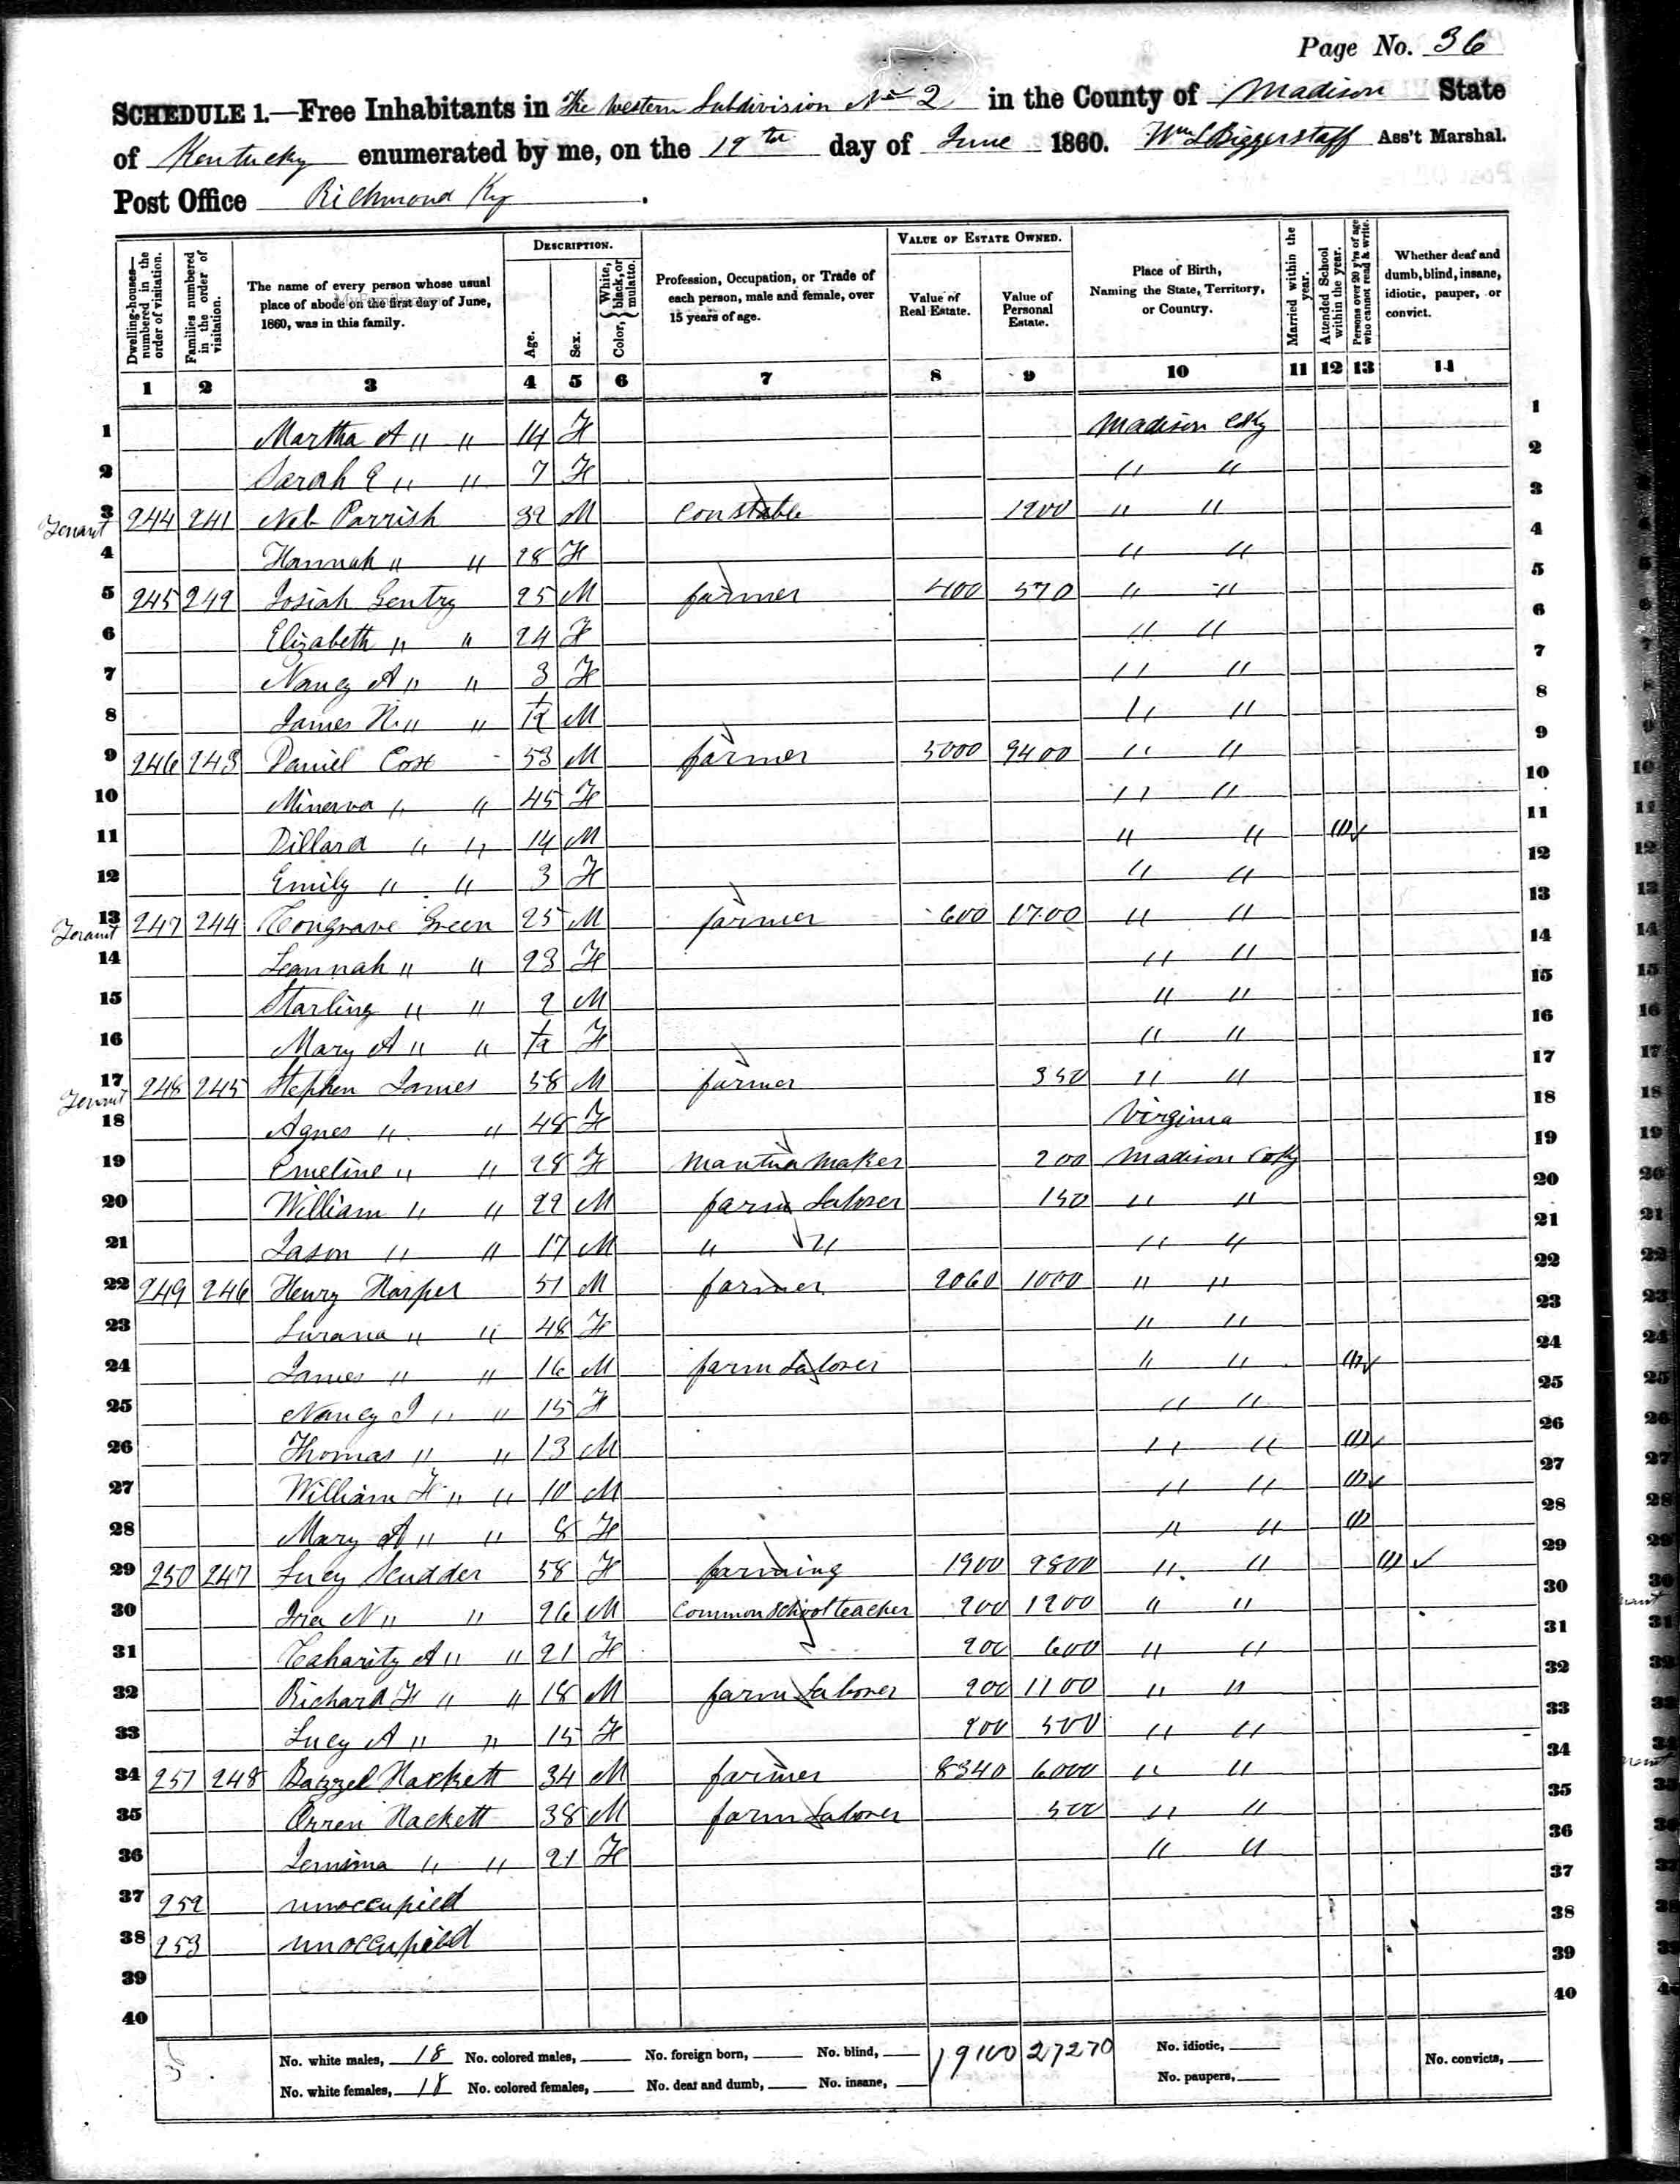 Page No. 36
SCHEDULE 1.—Free Inhabitants in The Western Subdivision No 2 in the County of Madison State
of Kentucky enumerated by me, on the 19th day of June 1860. Wm L Biggerstaff Ass't Marshal.
Post Office Richmond Ky.
Dwelling-houses—numbered in the order of visitation. Families numbered in the order of visitation. The name of every person whose usual place of abode on the first day of June, 1860, was in this family. DESCRIPTION. Age. Sex. Color, White, black, or mulatto. Profession, Occupation, or Trade of each person, male and female, over 15 years of age. VALUE OF ESTATE OWNED. Value of Real Estate. Value of Personal Estate. Place of Birth, Naming the State, Territory, or Country. Married within the year. Attended School within the year. Persons over 20 y'rs of age who cannot read & write. Whether deaf and dumb, blind, insane, idiotic, pauper, or convict.
1 2 3 4 5 6 7 8 9 10 11 12 13 14
1 Martha A " " 14 F Madison Co Ky 1
2 Sarah E " " 7 F " " 2
3 Tenant 244 241 Neb Parrish 32 M Constable 1200 " " 3
4 Hannah " " 28 F " " 4
5 245 242 Josiah Gentry 25 M farmer 400 570 " " 5
6 Elizabeth " " 24 F " " 6
7 Nancy A " " 3 F " " 7
8 James H " " M " " 8
9 246 243 Daniel Cox 53 M farmer 5000 9400 " " 9
10 Minerva " " 45 F " " 10
11 Dillard " " 14 M " " (1) 11
12 Emily " " 3 F " " 12
13 Tenant 247 244 Congrave Green 25 M farmer 600 1700 " " 13
14 Leannah " " 23 F " " 14
15 Starling " " 2 M " " 15
16 Mary A " " F " " 16
17 Tenant 248 245 Stephen James 58 M farmer 350 " " 17
18 Agnes " " 48 F Virginia 18
19 Emeline " " 28 F Mantua Maker 200 Madison Co Ky 19
20 William " " 22 M farm Laborer 150 " " 20
21 Jason " " 17 M " " " " 21
22 249 246 Henry Harper 51 M farmer 2060 1000 " " 22
23 Surana " " 48 F " " 23
24 James " " 16 M farm Laborer " " (1) 24
25 Nancy J " " 15 F " " 25
26 Thomas " " 13 M " " (1) 26
27 William H " " 10 M " " (1) 27
28 Mary A " " 8 F " " (1) 28
29 250 247 Lucy Scudder 58 F farming 1900 2800 " " (1) ✓ 29
30 Ira N " " 26 M Common School teacher 200 1200 " " 30
31 Caharity A " " 21 F 200 600 " " 31
32 Richard F " " 18 M farm Laborer 200 1100 " " 32
33 Lucy A " " 15 F 200 500 " " 33
34 251 248 Bazzel Hackett 34 M farmer 8340 6000 " " 34
35 Orren Hackett 38 M farm Laborer 500 " " 35
36 Jemima " " 21 F " " 36
37 252 unoccupied 37
38 253 unoccupied 38
39 39
40 40
No. white males, 18 No. colored males, No. foreign born, No. blind, 19100 27270 No. idiotic, No. convicts,
No. white females, 18 No. colored females, No. deaf and dumb, No. insane, No. paupers,